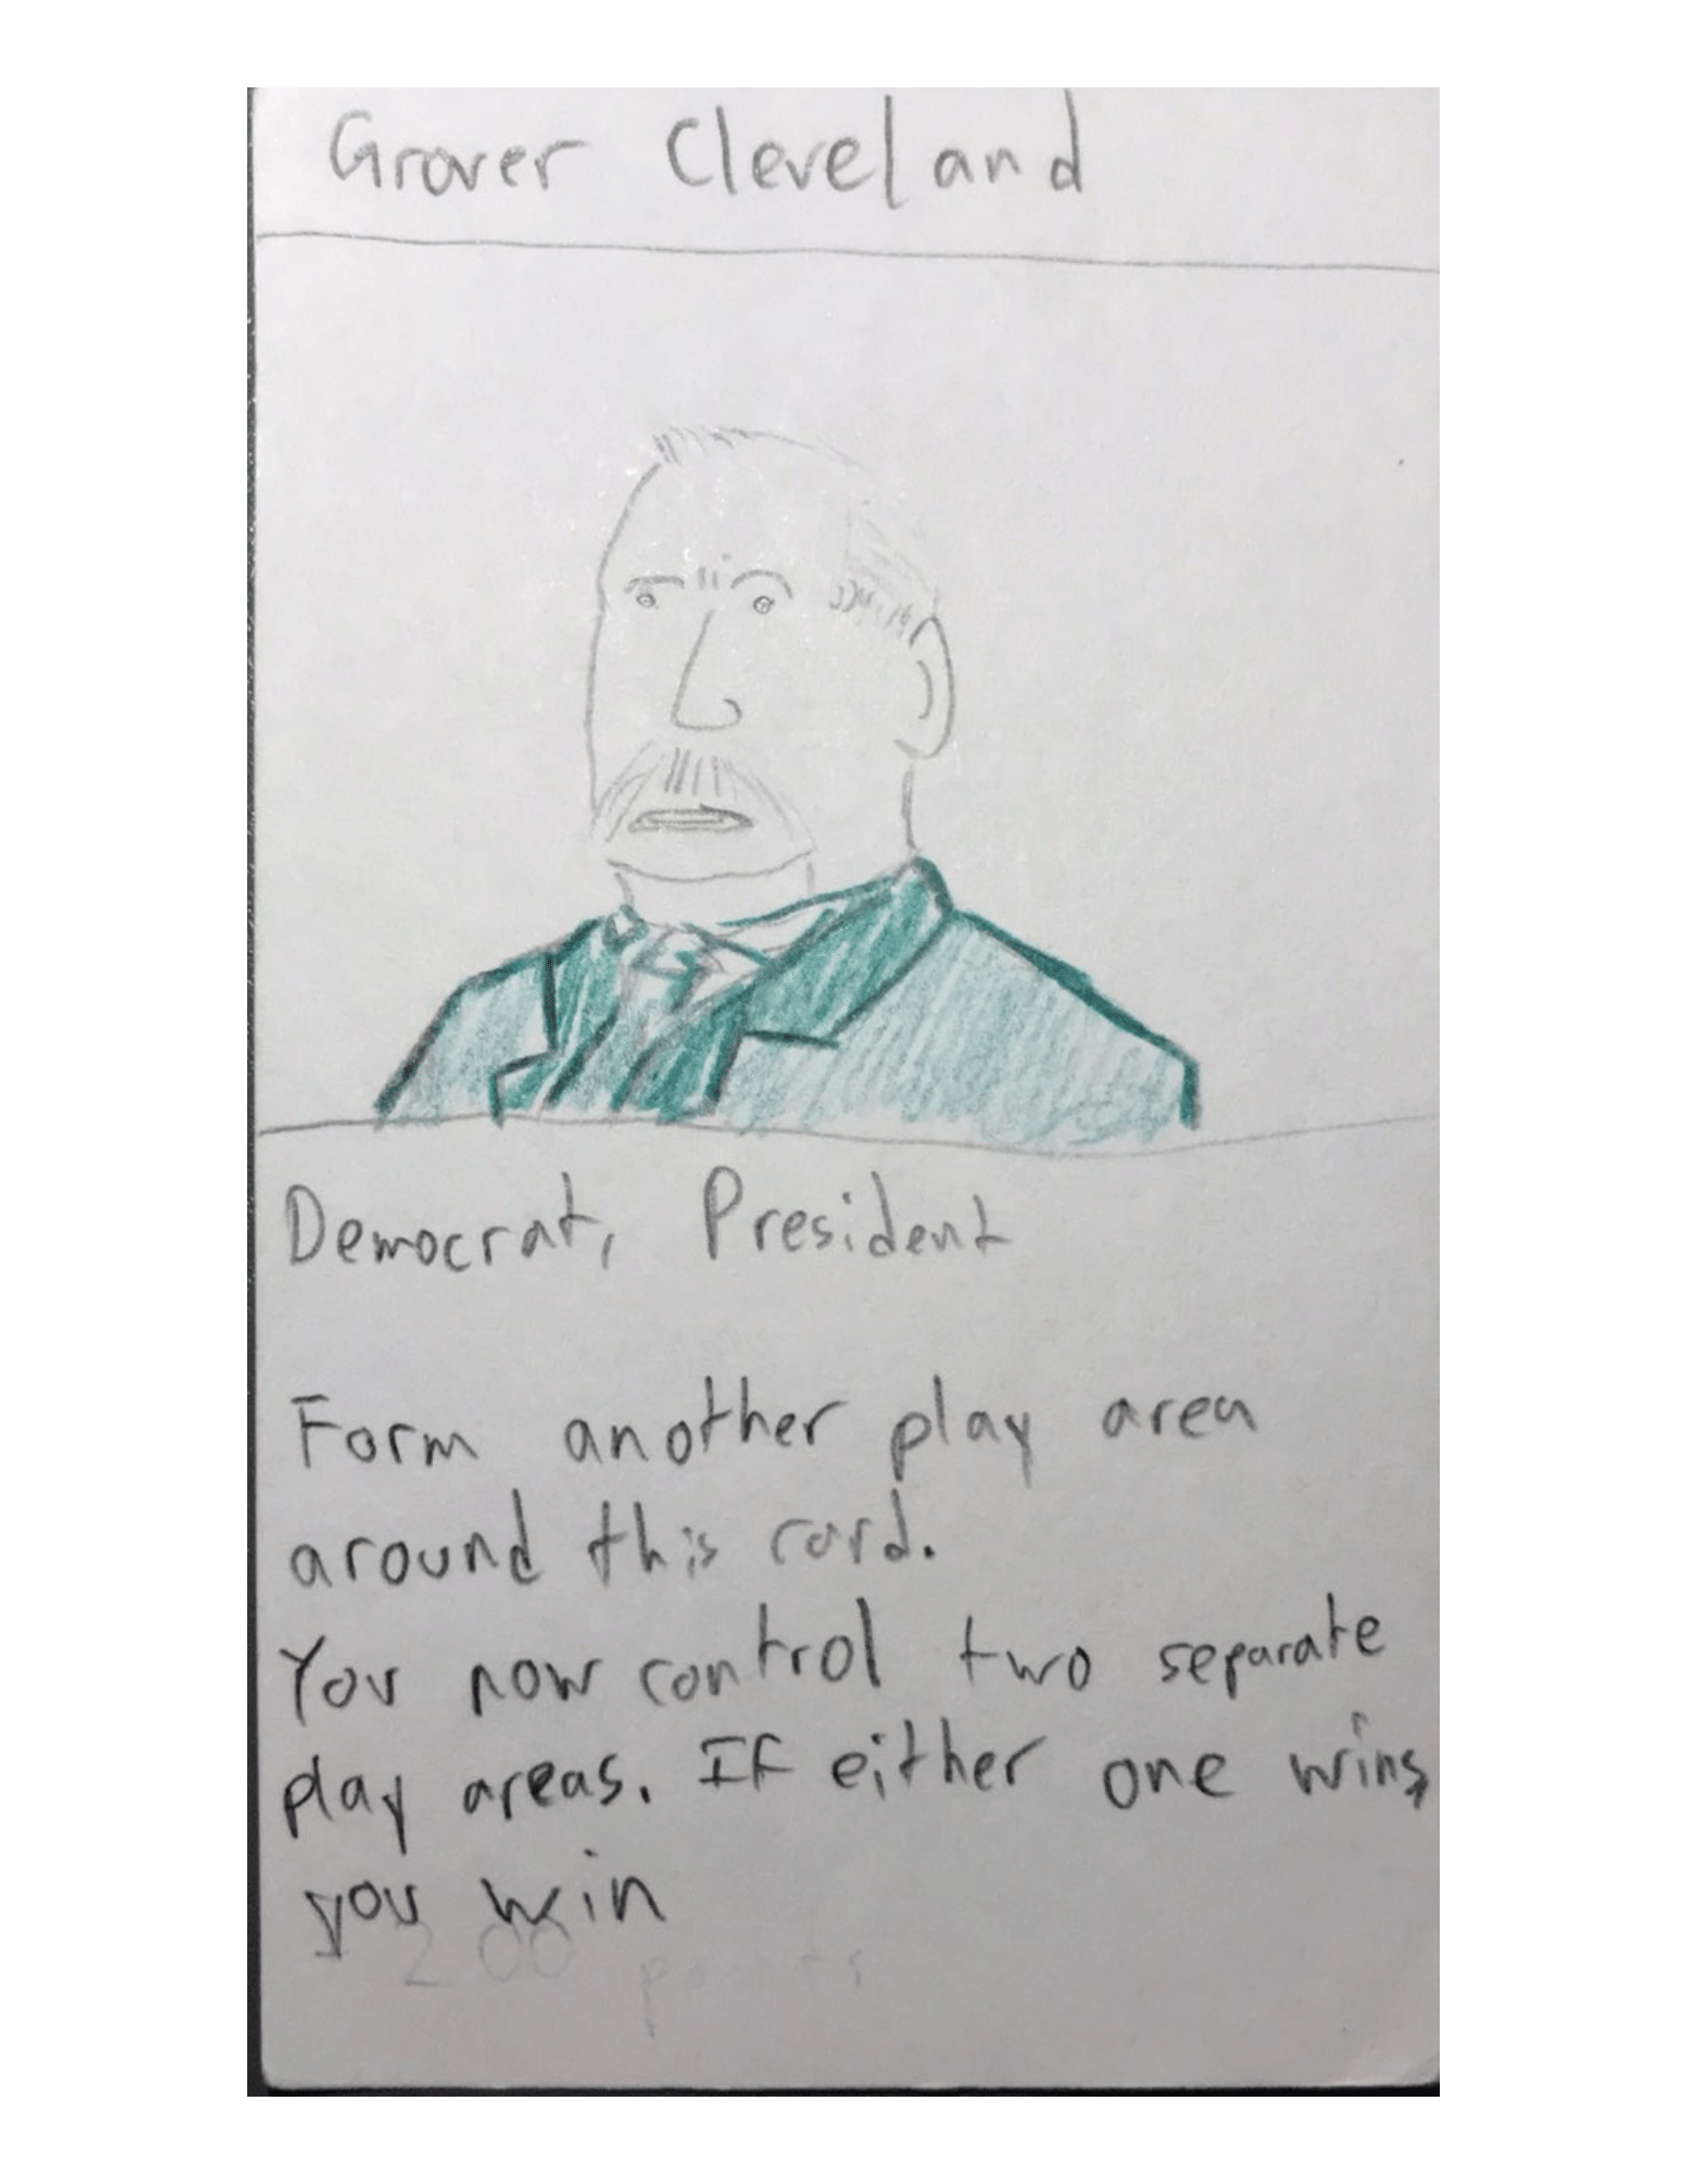 Grover Cleveland
Democrat, President
Form another play area
around this card.
You now control two separate
play areas. If either one wins,
you win
200 points